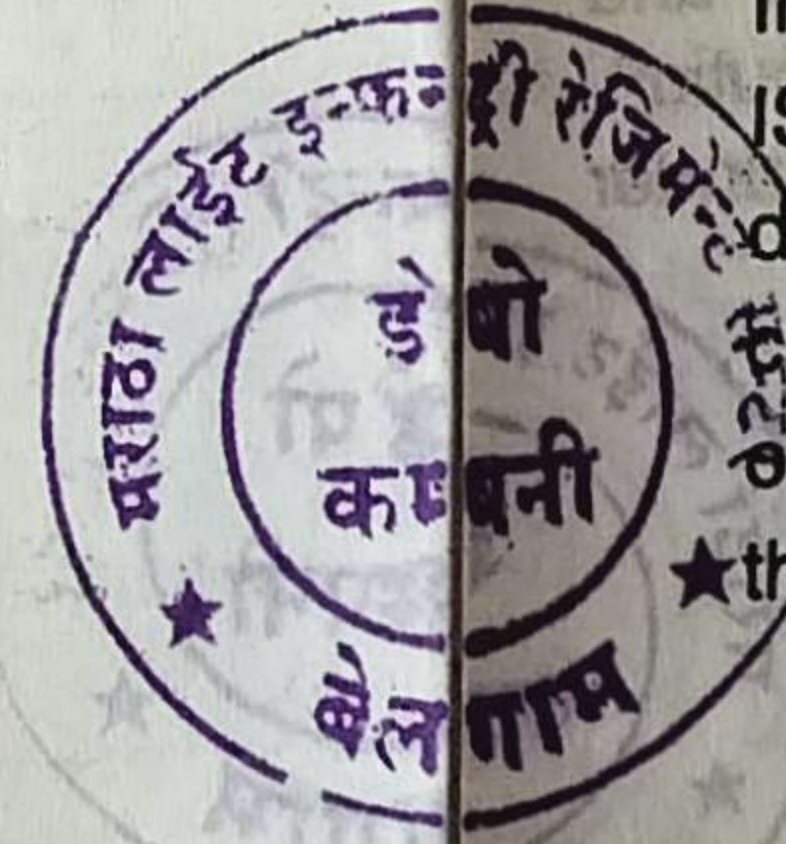 मराठा लाईट इन्फन्ट्री रेजिमेन्ट सेन्टर
डेपो
कम्पनी
बेलगाम
th